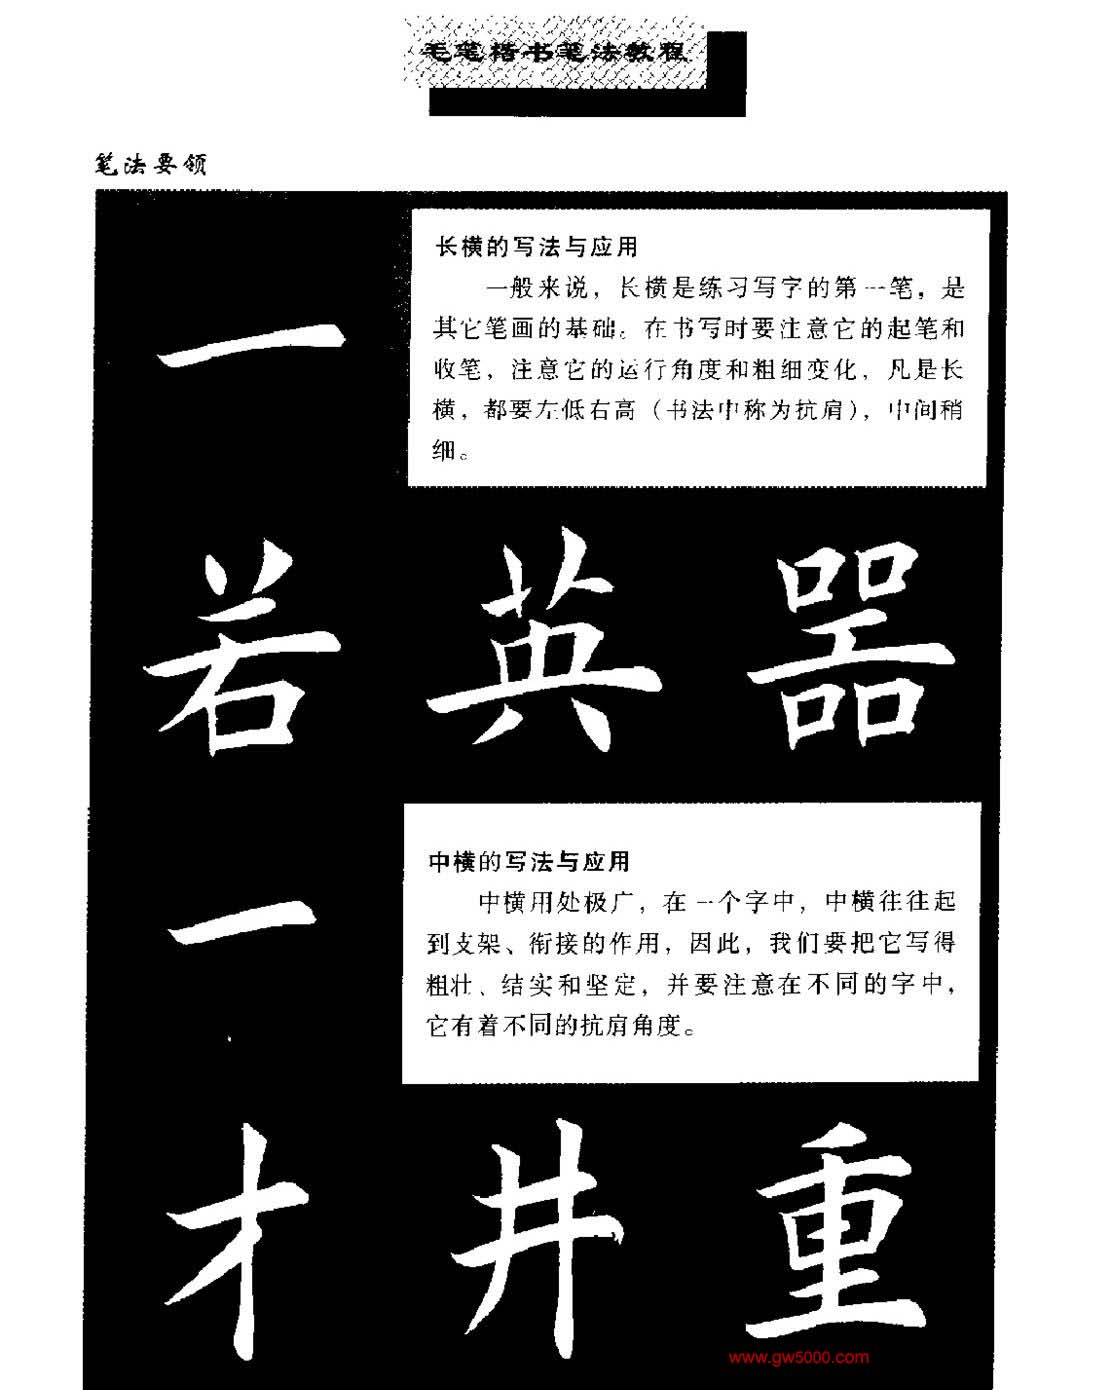 毛笔楷书笔法教程
笔法要领
一
长横的写法与应用
一般来说，长横是练习写字的第一笔，是
其它笔画的基础。在书写时要注意它的起笔和
收笔，注意它的运行角度和粗细变化，凡是长
横，都要左低右高（书法中称为抗肩），中间稍
细。
若 英 器
一
中横的写法与应用
中横用处极广，在一个字中，中横往往起
到支架、衔接的作用，因此，我们要把它写得
粗壮、结实和坚定，并要注意在不同的字中，
它有着不同的抗肩角度。
才 井 重
www.gw5000.com